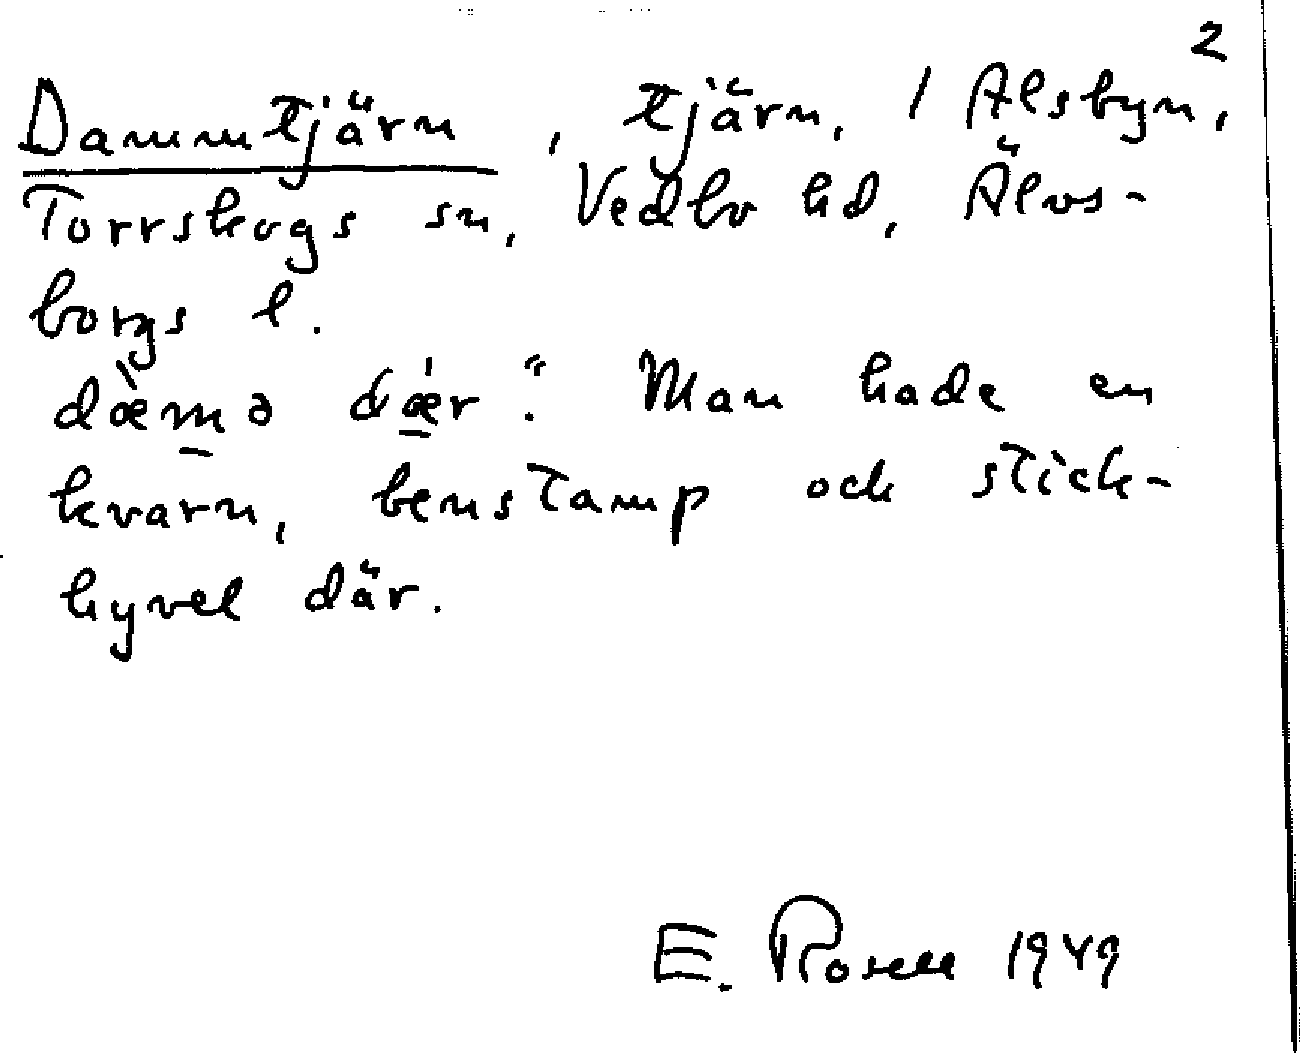 2
Dammtjärn, tjärn, / Alsbyn,
Torrskogs sn, Vedbo hd, Älvs-
borgs l.
dæ̀mə dǽr". Man hade en
kvarn, benstamp och stick-
hyvel där.
E. Rosell 1949